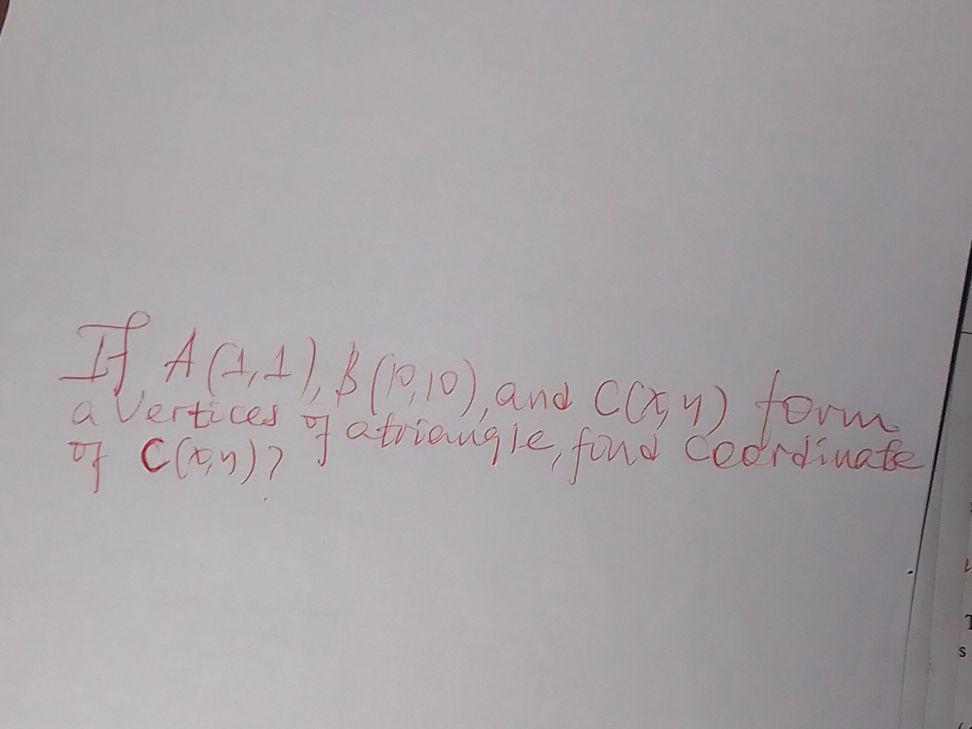 If A(1,1), B(10,10), and C(x,y) form
a vertices of atriangle, find coordinate
of C(x,y)?